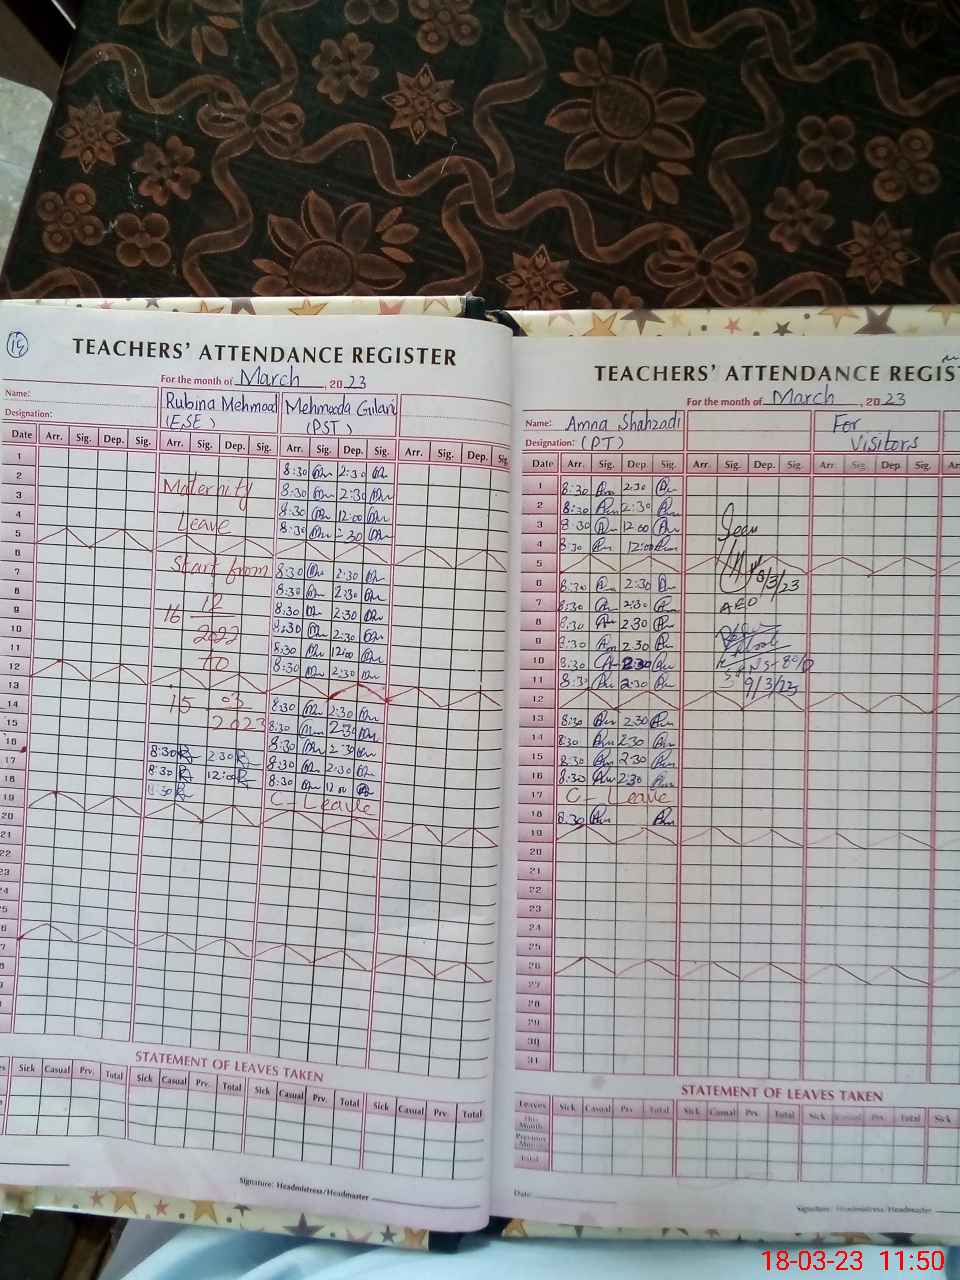 15
TEACHERS' ATTENDANCE REGISTER
For the month of March, 2023
Name: Rubina Mehmood Mehmooda Gilani
Designation: (ESE) (PST)
Date Arr. Sig. Dep. Sig. Arr. Sig. Dep. Sig. Arr. Sig. Dep. Sig. Arr. Sig. Dep. Sig.
1 8:30 2:30
2 Maternity 8:30 2:30
3 8:30 12:00
4 Leave 8:30 2:30
5
6 Start from 8:30 2:30
7 8:30 2:30
8 12 8:30 2:30
9 16 8:30 2:30
10 2022 8:30 12:00
11 to 8:30 2:30
12
13 03 8:30 2:30
14 15 8:30 2:30
15 2023 8:30 2:30
16 8:30 2:30 8:30 2:30
17 8:30 12:00 8:30 12:00
18 8:30 C-Leave
19
20
21
22
23
24
25
STATEMENT OF LEAVES TAKEN
Sick Casual Prv. Total Sick Casual Prv. Total Sick Casual Prv. Total Sick Casual Prv. Total
Signature: Headmistress/Headmaster
TEACHERS' ATTENDANCE REGIST
For the month of March, 2023
Name: Amna Shahzadi For
Designation: (PT) Visitors
Date Arr. Sig. Dep Sig. Arr. Sig. Dep. Sig. Arr. Sig. Dep. Sig.
1 8:30 2:30
2 8:30 2:30
3 8:30 12:00
4 8:30 12:00 Seen
5
6 8:30 2:30 8/3/23
7 8:30 2:30 AEO
8 8:30 2:30
9 8:30 2:30
10 8:30 2:30
11 8:30 2:30 9/3/23
12
13 8:30 2:30
14 8:30 2:30
15 8:30 2:30
16 8:30 2:30
17 C- Leave
18 8:30
19
20
21
22
23
24
25
26
27
28
29
30
31
STATEMENT OF LEAVES TAKEN
Leaves Sick Casual Prv Total Sick Casual Prv. Total Sick Casual Prv. Total Sick
This Month
Previous Month
Total
Date
Signature: Headmistress/Headmaster
18-03-23 11:50